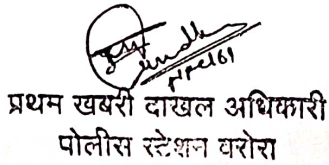 प्रथम खबरी दाखल अधिकारी
पोलीस स्टेशन वरोरा